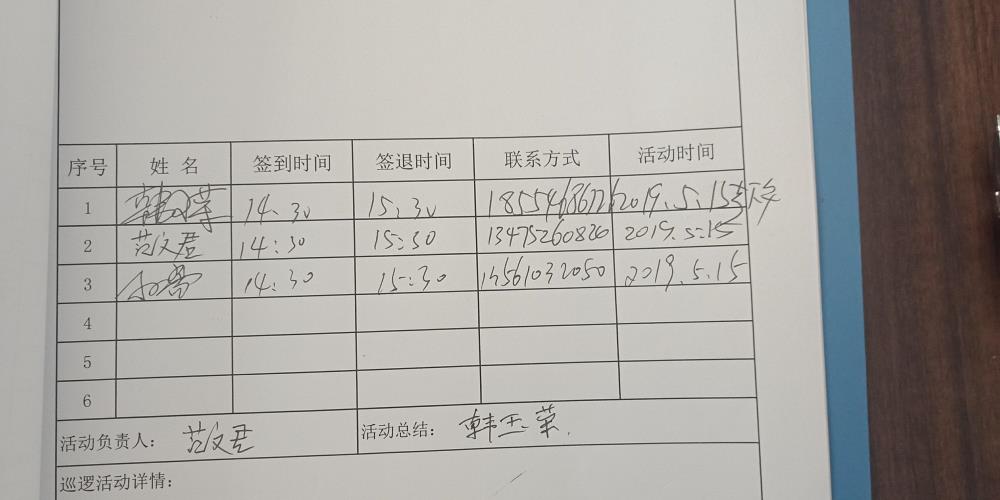 序号 姓 名 签到时间 签退时间 联系方式 活动时间
1 14:30 15:30 2019.5.15
2 范文君 14:30 15:30 13475260820 2019.5.15
3 14:30 15:30 13561032050 2019.5.15
4
5
6
活动负责人: 范文君 活动总结: 韩玉荣.
巡逻活动详情: